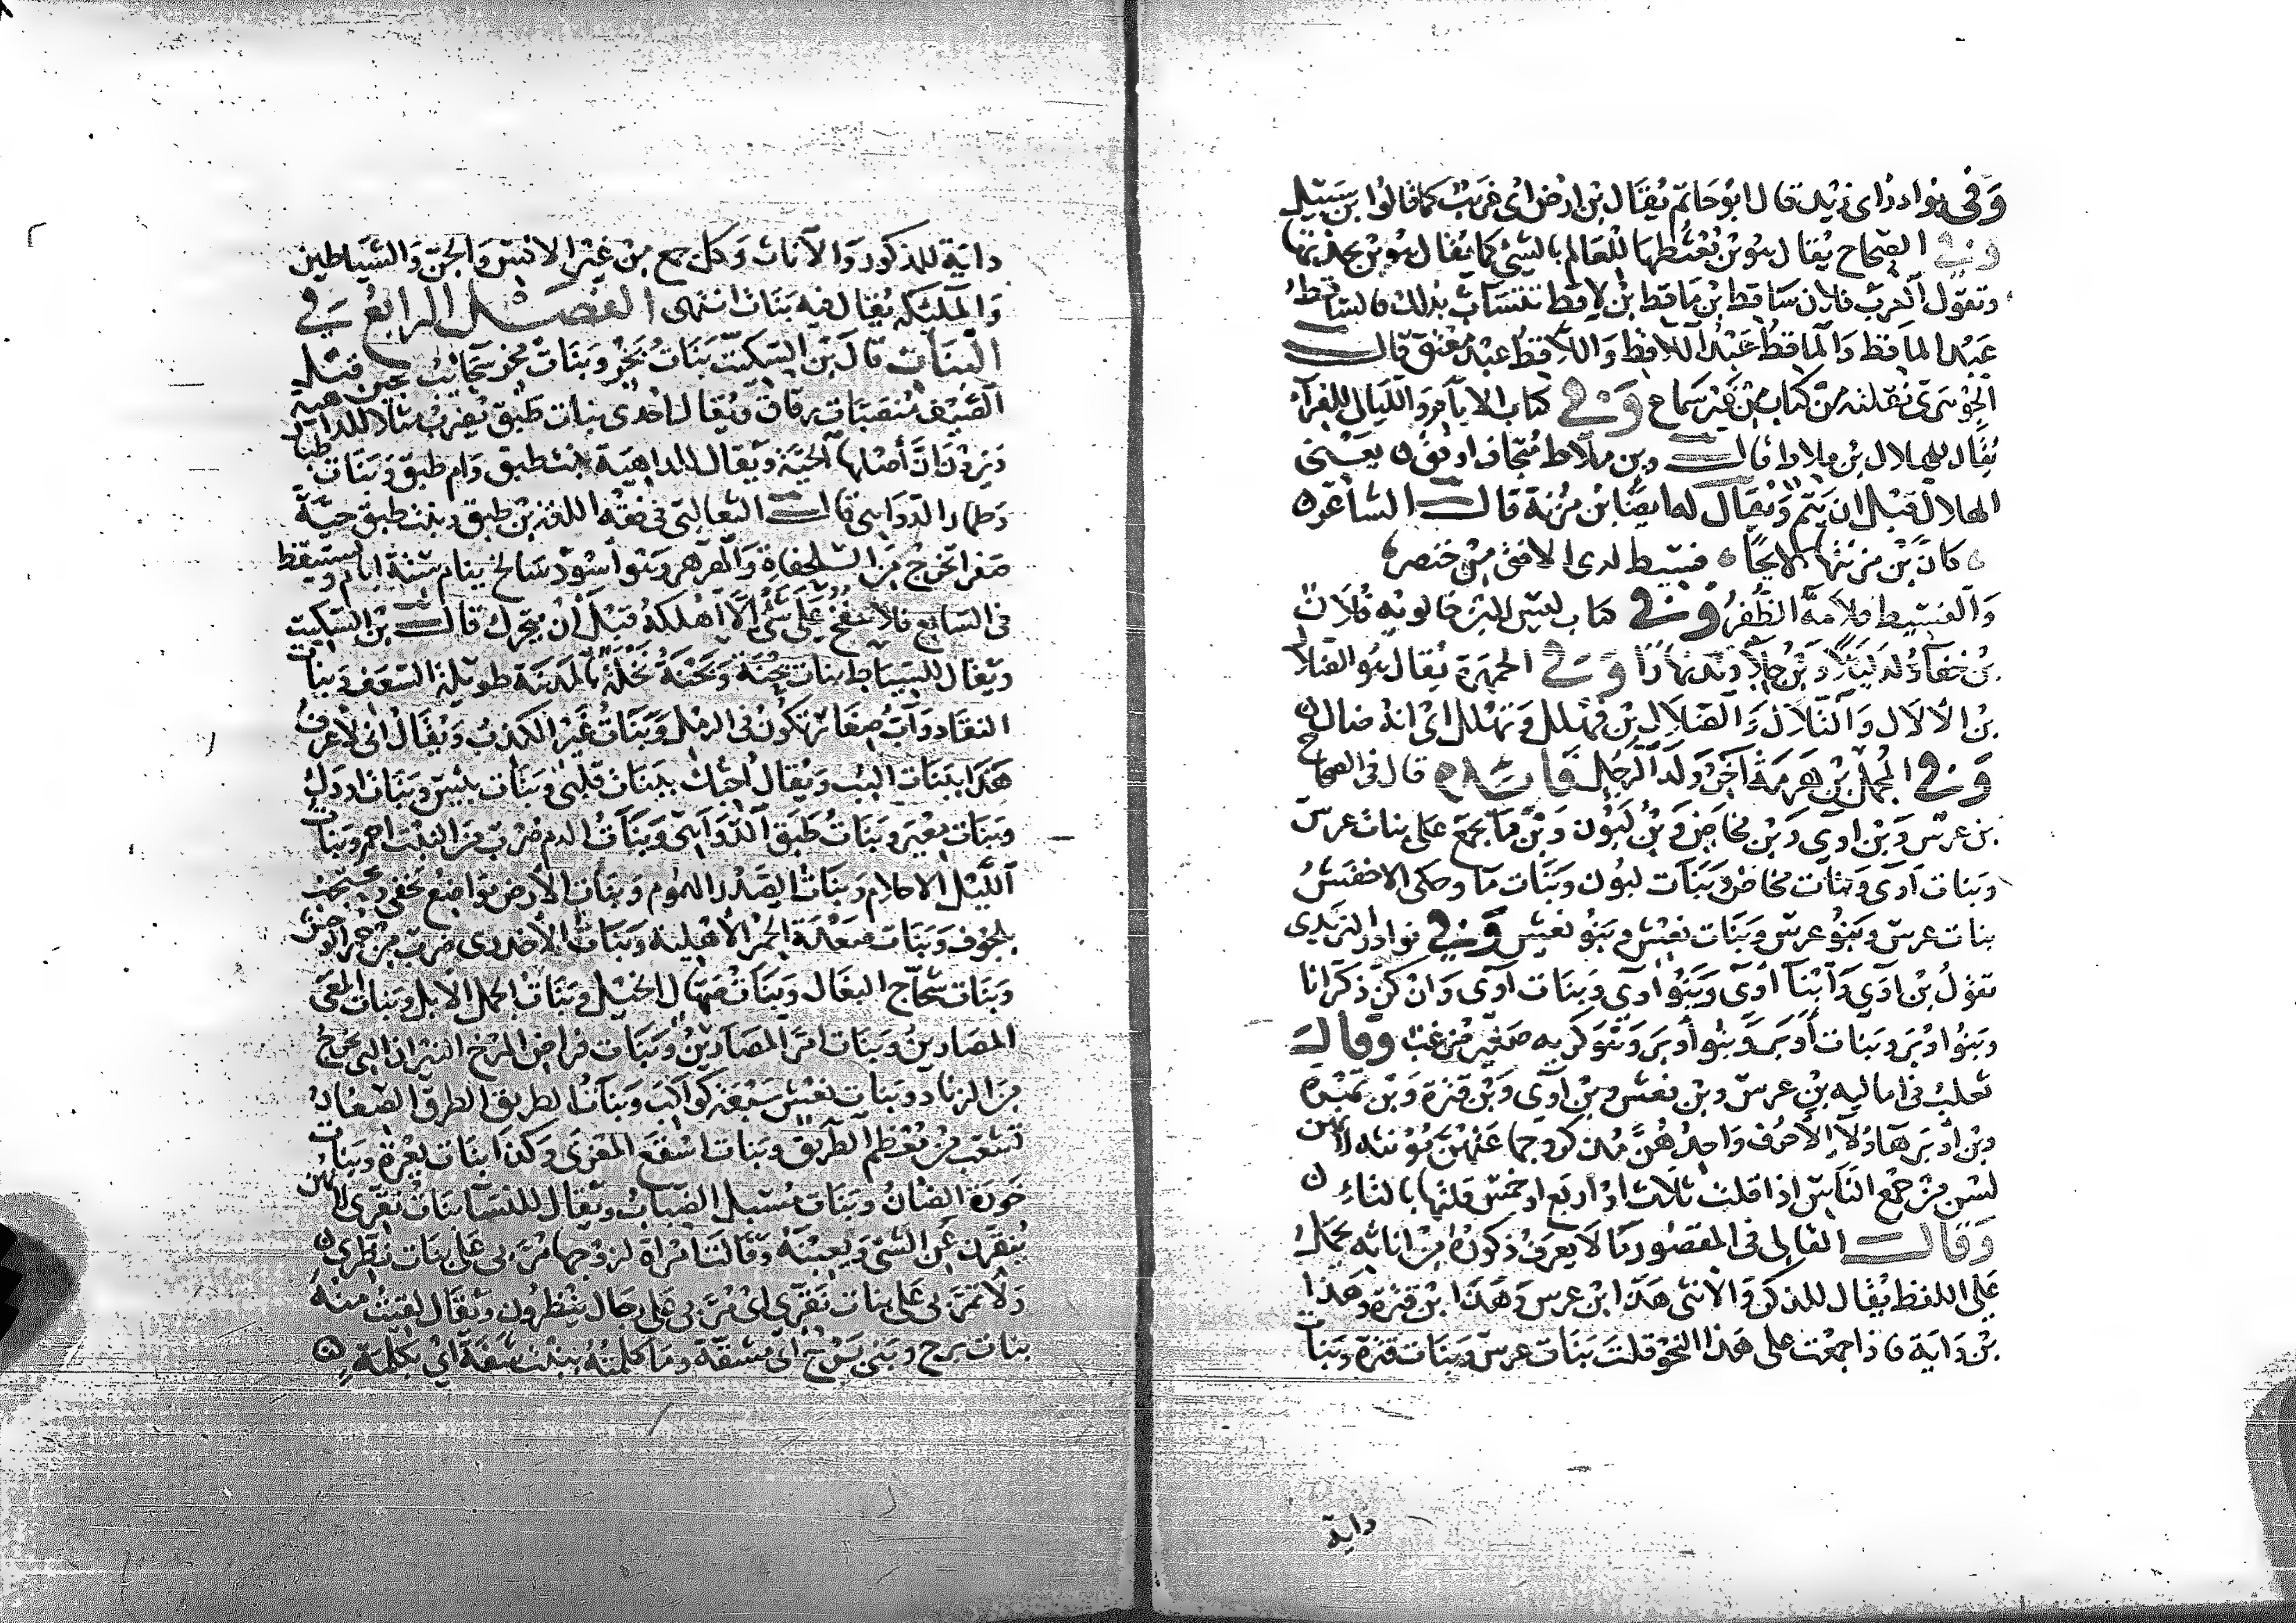 وفى نوادر ابى زيد قال ابو حاتم يقال بن ارض اى غريب كما قالوا بن سبيل
وفي الصحاح يقال هو بن بعثطها للعالم بالشئ كما يقال هو بن بجدتها
وتقول العرب فلان ساقط بن ماقط بن لاقط تتساب بذلك فالساقط
عبد الماقط والماقط عبد اللاقط واللاقط عبد معتق قال
الجوهرى نقلته من كتاب من غير سماع وفي كتاب الايام والليالى للفرآء
يقال للهلال بن ملاط قال وبن ملاط متجاف ادفق ن يعنى
الهلال قبل ان يتم ويقال له ايضا بن مزنة قال الشاعر ن
كان بن مزنتها لايحا فسيط لدى الافق من خنصر
والفسيط قلامة الظفر وفي كتاب ليس لابن خالويه فلان
بن خفآ ولد ليلا وبن جلا ولد نهارا وفي الجمهرة يقال هو الضلال
بن الالال والتلال والضلال بن فهلل وثهلل اى انه ضال ن
وفي المجمل بن هرمة آخر ولد الرجل فايدة قال فى الصحاح
بن عرس وبن اوى وبن مخاض وبن لبون وبن مآ يجمع على بنات عرس
وبنات آوى وبنات مخاض وبنات لبون وبنات مآ وحكى الاخفش
بنات عرس وبنو عرس وبنات نعش وبنو نعش وفي نوادر اليزيدى
تقول بن آوى وابنا آوى وبنو اوى وبنات آوى وان كن ذكرانا
وبنو اوبر وبنات أوبر وبنو أوبر وهو كريه صغير مزغب وقال
ثعلب فى اماليه بن عرس وبن نعش وبن آوى وبن قترة وبن تمرة
وبن اوبر هاولآ الاحرف واحدهن مذكر وجماعتهن مؤنثه لانهن
لسن من جمع الناس اذا قلت ثلاث او اربع او خمس قلتها بالتاء ن
وقال القالى فى المقصور ما لا يعرف ذكوره من اناثه يحمل
على اللفظ يقال للذكر والانثى هذا ابن عرس وهذا ابن قترة وهذا
بن داية فاذا جمعت على هذا النحو قلت بنات عرس وبنات قترة وبنات
داية
داية للذكور والآناث وكل جمع من غير الانس والجن والشياطين
والملئكه يقال فيه بنات انتهى الفصل الرابع في
البنات قال بن السكيت بنات بخر وبنات مخر سحائب يجئن قبل
الصيف منتصبات رقاق ويقال احدى بنات طبق يضرب مثلا للداهية
ويرون ان أصلها الحية ويقال للداهية بنت طبق وام طبق وبنات طبار
وطمار الدواهى قال الثعالبى فى فقه اللغه بن طبق وبنت طبق حية
صفرا تخرج من السلحفاة والهرهر وهو أسود سالخ ينام ستة ايام ويستيقظ
فى السابع فلا ينفخ على شئ الا أهلكه قبل أن يتحرك قال بن السكيت
ويقال للسياط بنات بحنة وبحنة نخلة بالمدينة طويلة السعف وبنات
النقا دواب صغار تكون فى الرمل وبنات غير الكذب ويقال انى لأعرف
هذا ببنات البب ويقال احبك ببنات قلبى وبنات بئس وبنات اودك
وبنات معير وبنات طبق الدواهى وبنات الدم ضرب من النبت احمر وبنات
الليل الاحلام وبنات الصدر الهموم وبنات الأرض مواضع تخفى وتحتجب
بالجوف وبنات صعدة الحمر الأهلية وبنات الأخدرى ضرب من حمر الوحش
وبنات شحاج البغال وبنات صهال الخيل وبنات الجمل الابل وبنات المعى
المصارين وبنات امر المصارين وبنات فراض المرخ النيران التى تخرج
من الزناد وبنات نعش سبعة كواكب وبنات الطريق الطرق الصغار
تتشعب من معظم الطريق وبنات اسفع المعزى وكذا بنات يعرة وبنات
خورة الضان وبنات مسبل الضباب ويقال للنسا بنات نقرى لانهن
ينقرن عن الشئ ويعبنه وقالت امراة لزوجها مر بى على بنات نظرى ن
ولا تمر بى على بنات نقرى اى مر بى على رجال ينظرون ويقال لقيت منه
بنات برح وبنى برح اى مشقة وما كلمته ببنت شفة اى بكلمة ن